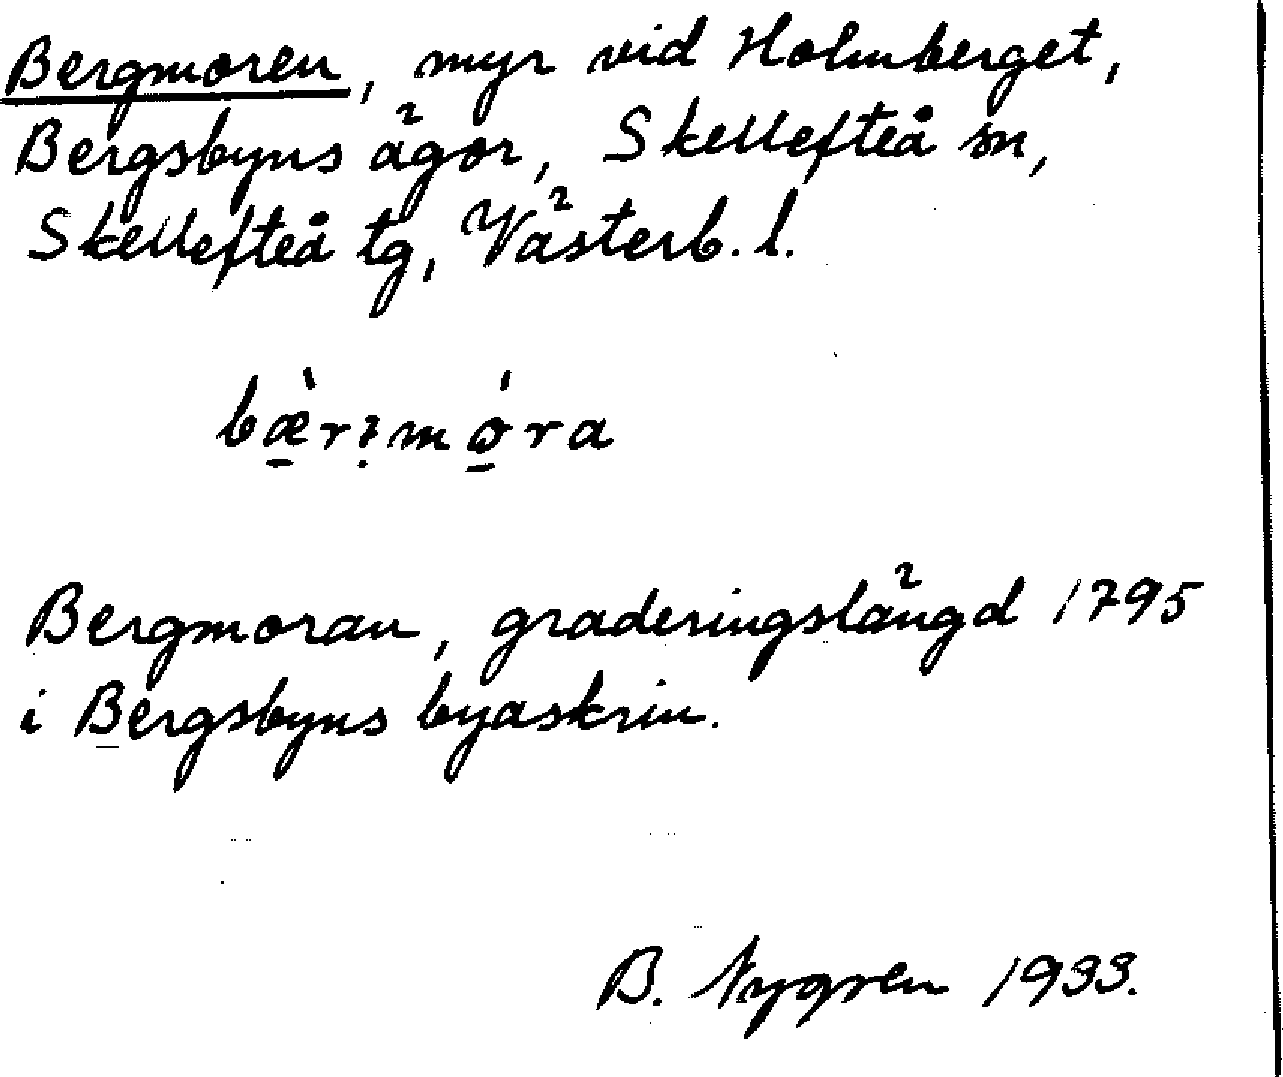 Bergmoren, myr vid Holmberget,
Bergsbyns ägor, Skellefteå sn,
Skellefteå tg, Västerb. l.
Bergmoran, graderingslängd 1795
i Bergsbyns byaskrin.
B. Nygren 1933.